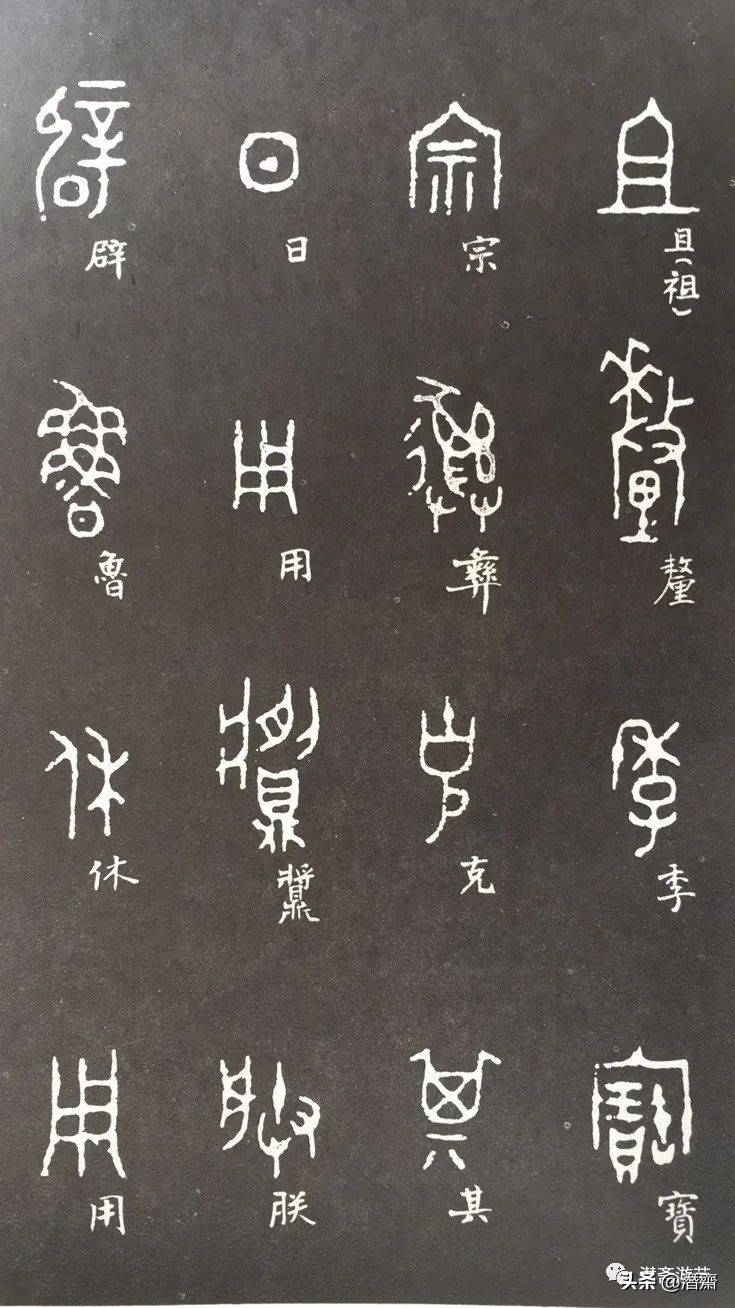 且(祖)釐季寶
宗彝克其
日用䵼朕
辟魯休用
头条 @潛齋